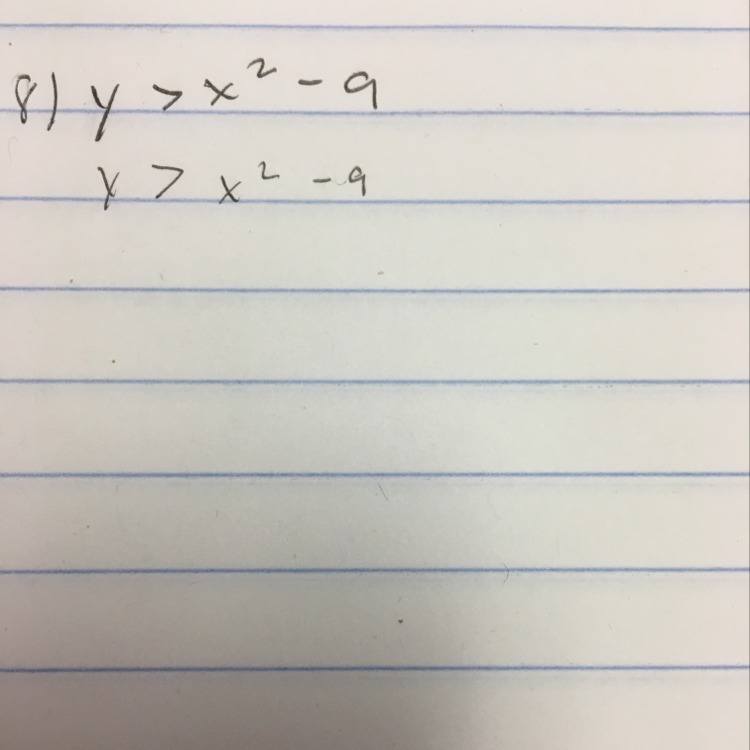 8) y > x² - 9
y > x² - 9